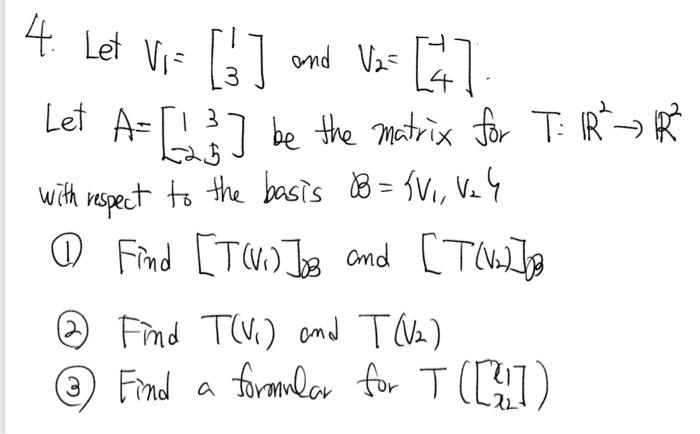 4. Let V₁ = [1 3] and V₂ = [-1 4].
Let A = [1 3 -2 5] be the matrix for T: ℝ² → ℝ²
with respect to the basis B = {V₁, V₂}
① Find [T(V₁)]_B and [T(V₂)]_B
② Find T(V₁) and T(V₂)
③ Find a formular for T([x₁ x₂])